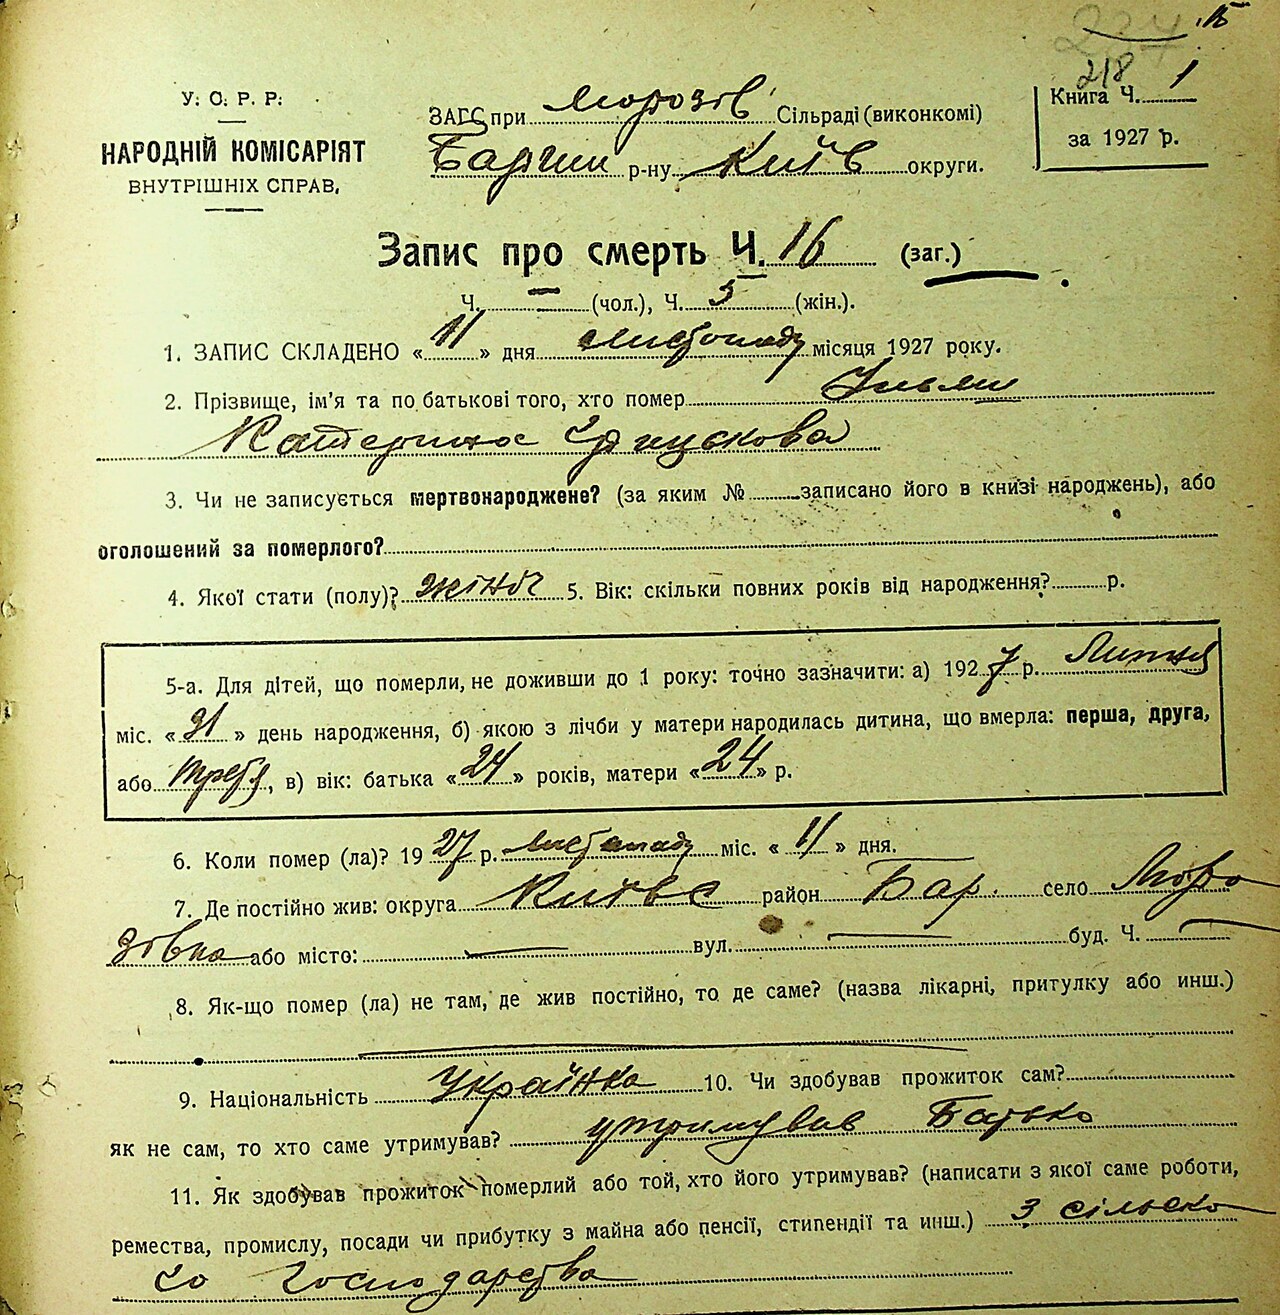 237 15
218
У. С. Р. Р.
НАРОДНІЙ КОМІСАРІЯТ
ВНУТРІШНІХ СПРАВ.
ЗАГС при Морозів Сільраді (виконкомі)
р-ну Київ округи.
Книга Ч. 1
за 1927 р.
Запис про смерть Ч. 16 (заг.)
Ч. — (чол.), Ч. 5 (жін.).
1. ЗАПИС СКЛАДЕНО « 11 » дня листопаду місяця 1927 року.
2. Прізвище, ім'я та по батькові того, хто помер
Катерина
3. Чи не записується мертвонароджене? (за яким № записано його в книзі народжень), або
оголошений за померлого?
4. Якої стати (полу)? жіноч 5. Вік: скільки повних років від народження? р.
5-а. Для дітей, що померли, не доживши до 1 року: точно зазначити: а) 1927 р. Липня
міс. « 31 » день народження, б) якою з лічби у матери народилась дитина, що вмерла: перша, друга,
або третя, в) вік: батька « 24 » років, матери « 24 » р.
6. Коли помер (ла)? 1927 р. листопаду міс. « 11 » дня.
7. Де постійно жив: округа Київс район Бар. село Моро
зівка або місто: — вул. — буд. Ч. —
8. Як-що помер (ла) не там, де жив постійно, то де саме? (назва лікарні, притулку або инш.)
9. Національність Українка 10. Чи здобував прожиток сам?
як не сам, то хто саме утримував? утримував Батько
11. Як здобував прожиток померлий або той, хто його утримував? (написати з якої саме роботи,
ремества, промислу, посади чи прибутку з майна або пенсії, стипендії та инш.) З сільско
го Господарства